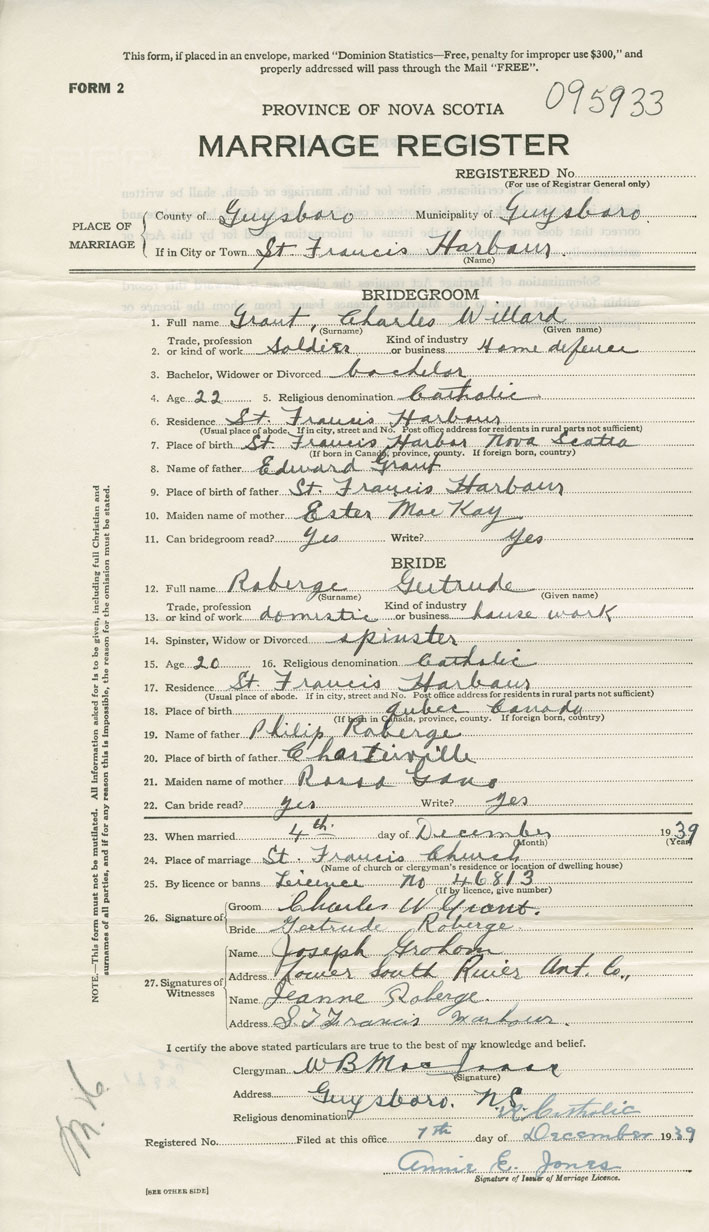 This form, if placed in an envelope, marked "Dominion Statistics—Free, penalty for improper use $300," and
properly addressed will pass through the Mail "FREE".
FORM 2
095933
PROVINCE OF NOVA SCOTIA
MARRIAGE REGISTER
REGISTERED No.
(For use of Registrar General only)
PLACE OF MARRIAGE
County of Guysboro Municipality of Guysboro
If in City or Town St Francis Harbour.
(Name)
BRIDEGROOM
1. Full name Grant, Charles Willard
(Surname) (Given name)
2. Trade, profession or kind of work Soldier Kind of industry or business Home defence
3. Bachelor, Widower or Divorced bachelor
4. Age 22 5. Religious denomination Catholic
6. Residence St. Francis Harbour
(Usual place of abode. If in city, street and No. Post office address for residents in rural parts not sufficient)
7. Place of birth St. Francis Harbor Nova Scotia
(If born in Canada, province, county. If foreign born, country)
8. Name of father Edward Grant
9. Place of birth of father St. Francis Harbour
10. Maiden name of mother Ester Mac Kay
11. Can bridegroom read? Yes Write? Yes
BRIDE
12. Full name Roberge Gertrude
(Surname) (Given name)
13. Trade, profession or kind of work domestic Kind of industry or business house work
14. Spinster, Widow or Divorced spinster
15. Age 20 16. Religious denomination Catholic
17. Residence St. Francis Harbour
(Usual place of abode. If in city, street and No. Post office address for residents in rural parts not sufficient)
18. Place of birth Qubec Canada
(If born in Canada, province, county. If foreign born, country)
19. Name of father Philip Roberge
20. Place of birth of father Charterville
21. Maiden name of mother
22. Can bride read? yes Write? Yes
23. When married 4th. day of December 1939
(Month) (Year)
24. Place of marriage St. Francis Church
(Name of church or clergyman's residence or location of dwelling house)
25. By licence or banns Licence No 46813
(If by licence, give number)
26. Signature of
Groom Charles W Grant.
Bride Gertrude Roberge.
27. Signatures of Witnesses
Name Joseph Graham
Address Lower South River Ant. Co.,
Name Jeanne Roberge.
Address S.T Francis Harbour.
I certify the above stated particulars are true to the best of my knowledge and belief.
Clergyman W B Mac Isaac
(Signature)
Address Guysboro. N.S.
Religious denomination R. Catholic
Registered No. Filed at this office 7th day of December 1939
Annie E. Jones
Signature of Issuer of Marriage Licence.
[SEE OTHER SIDE]
NOTE.—This form must not be mutilated. All information asked for is to be given, including full Christian and
surnames of all parties, and if for any reason this is impossible, the reason for the omission must be stated.